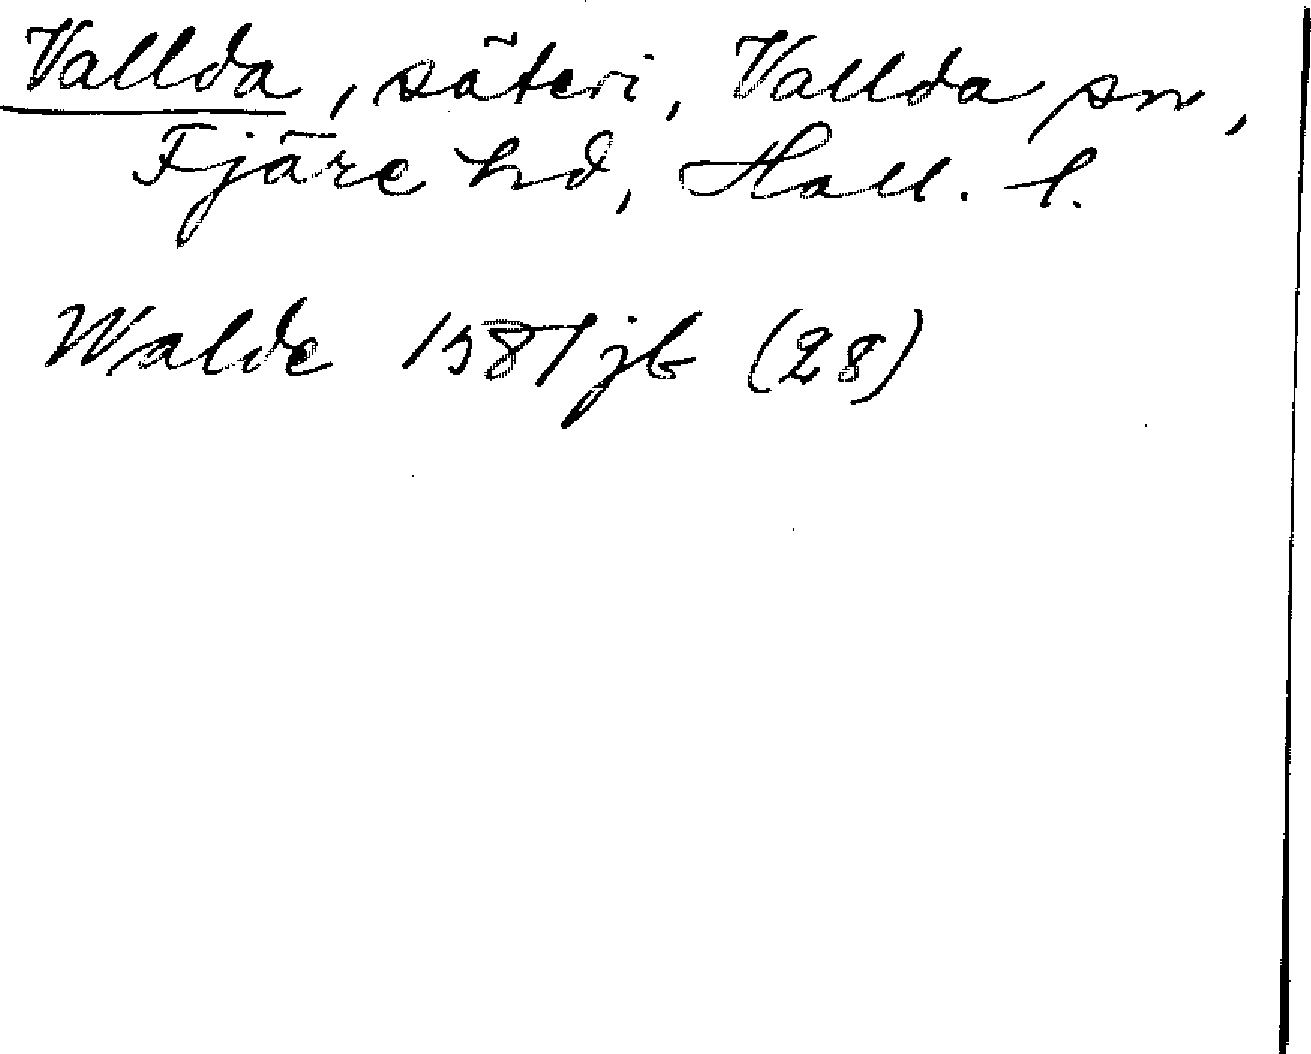 Vallda, säteri, Vallda sn,
Fjäre hd, Hall. l.
Walde 1581 jb (28)